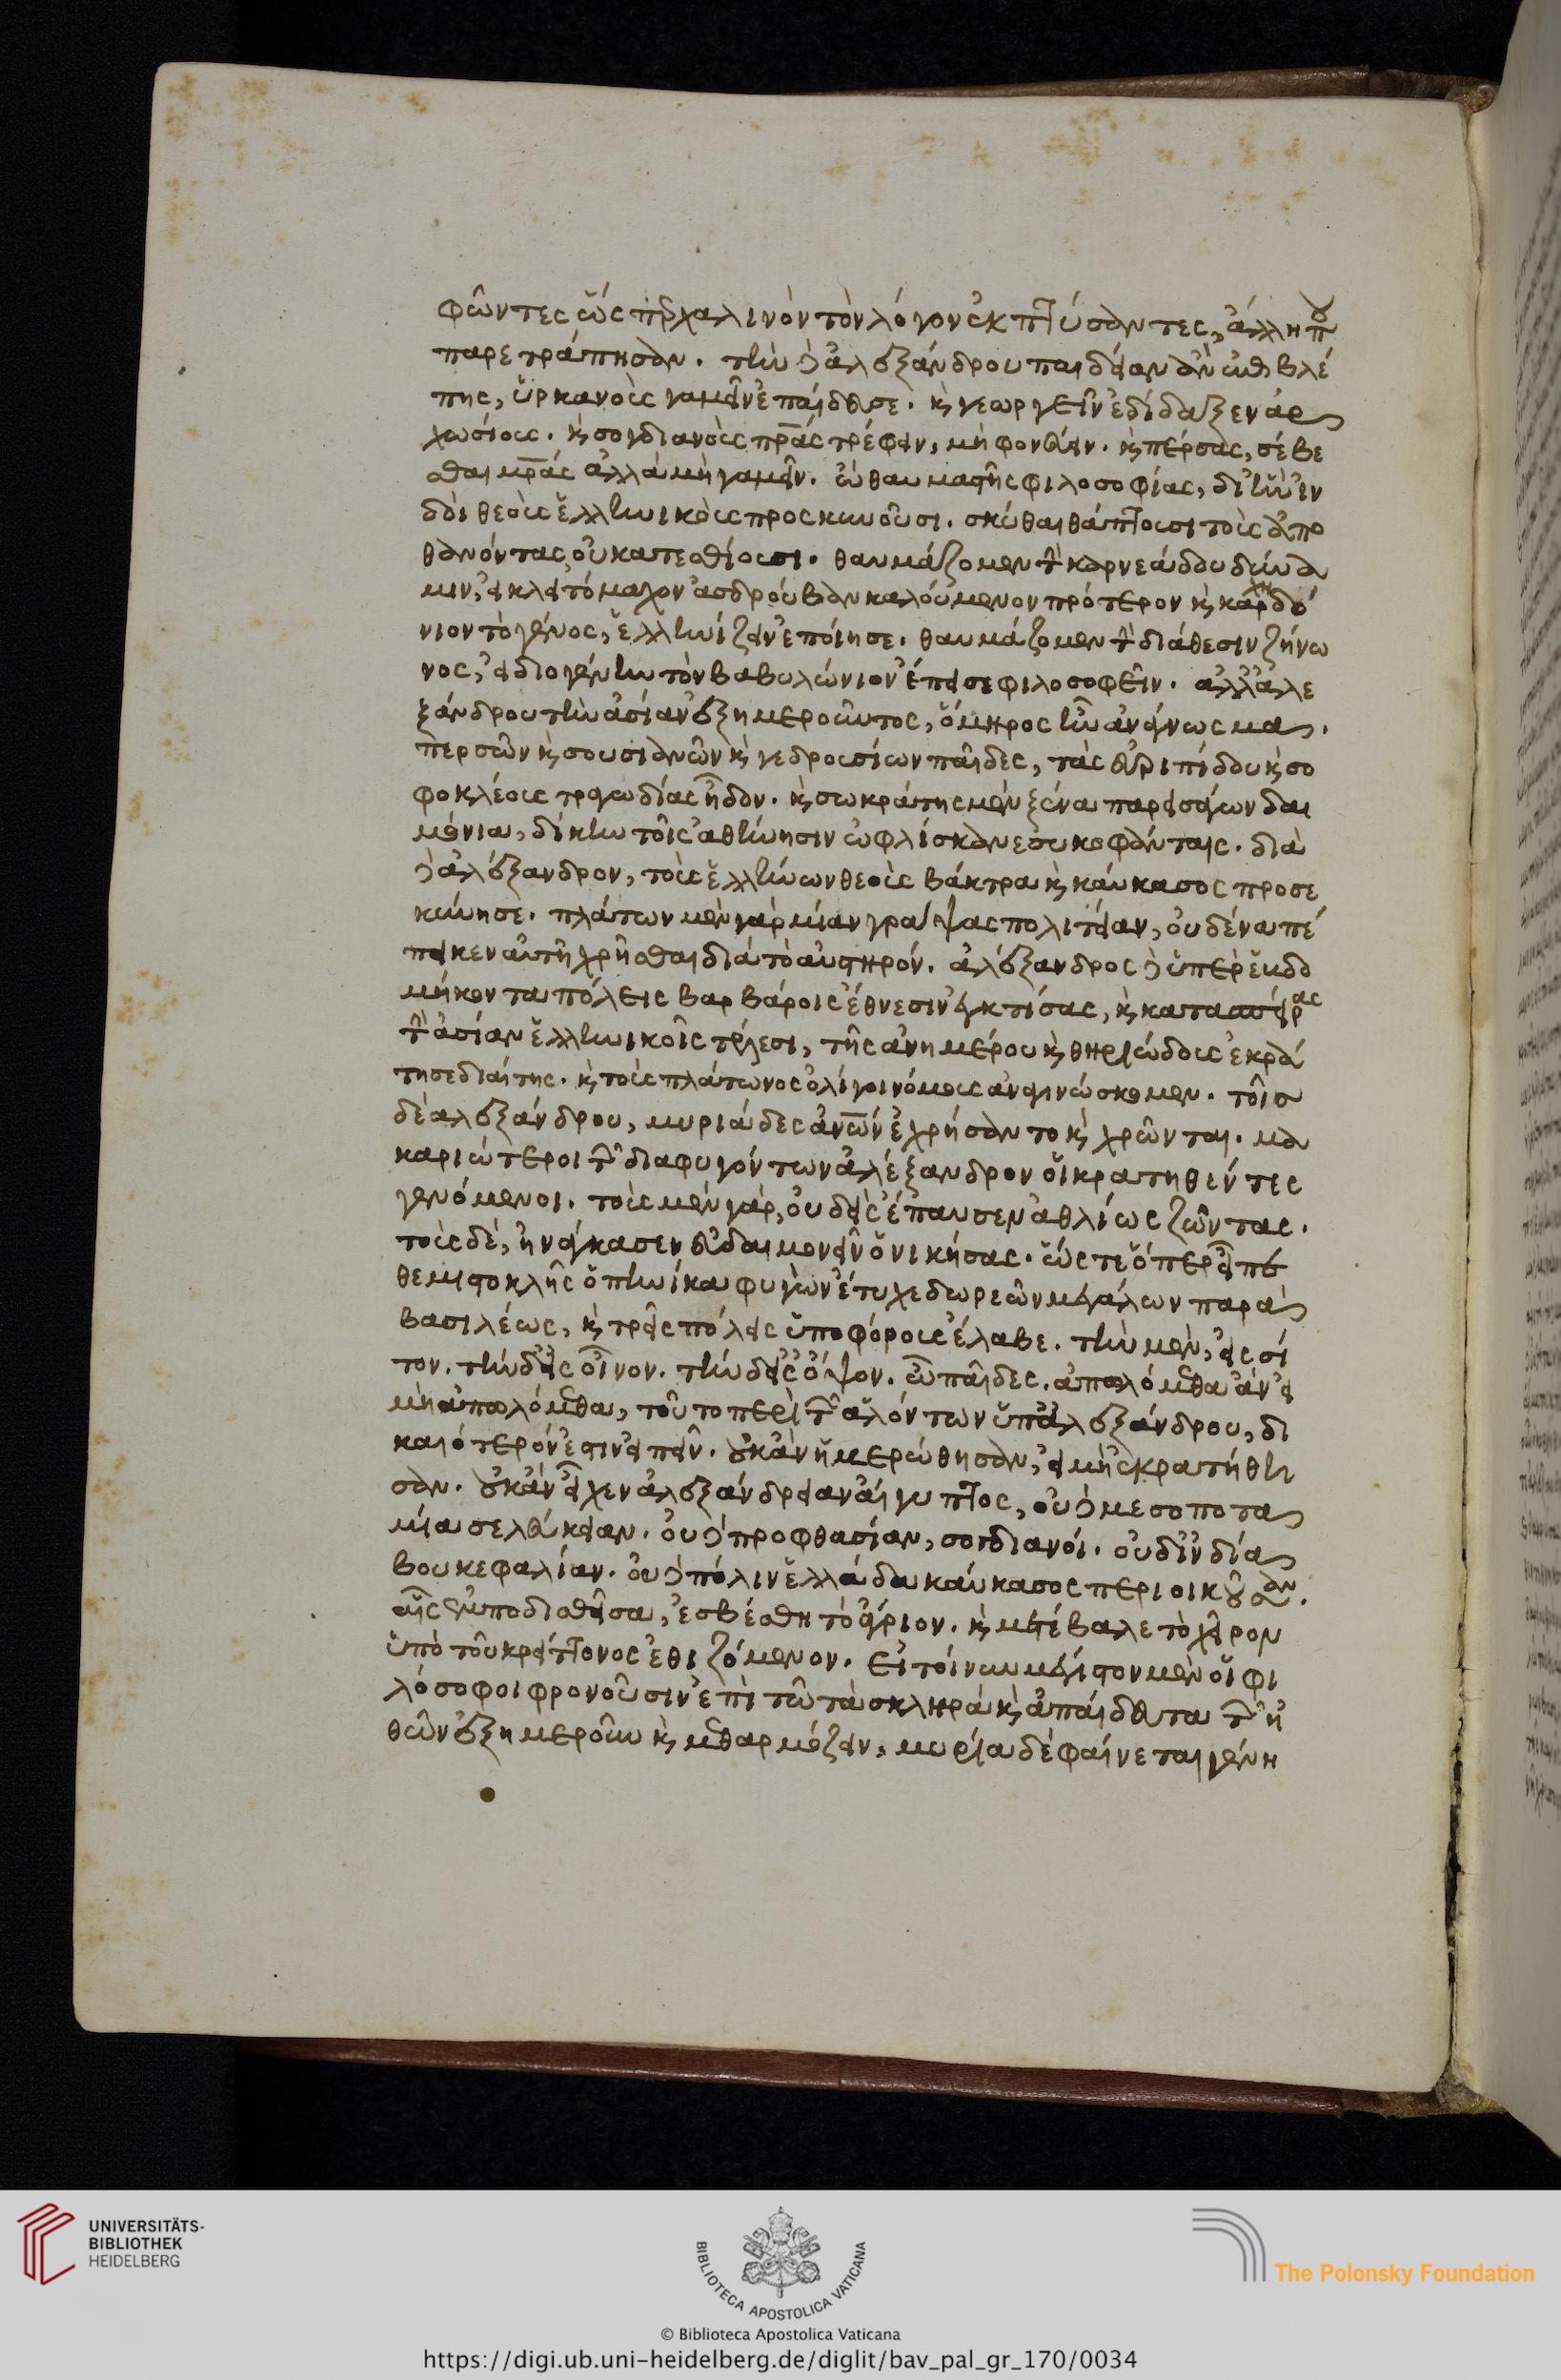 φῶντες ὥσπερ χαλινὸν τὸν λόγον ἐκπτύσαντες, ἄλλη που
παρετράπησαν. τὴν δὲ ἀλεξάνδρου παιδείαν ἂν ἐπιβλέ
πης, ὑρκανοὺς γαμεῖν ἐπαίδευσε. καὶ γεωργεῖν ἐδίδαξεν ἀρα
χωσίους. καὶ σογδιανοὺς πρας τρέφειν, μὴ φονεύειν. καὶ πέρσας, σέβε
σθαι μρας ἀλλὰ μὴ γαμεῖν. ὢ θαυμαστῆς φιλοσοφίας, δι' ἣν ἰν
δοὶ θεοὺς ἑλληνικοὺς προσκυνοῦσι. σκύθαι θάπτουσι τοὺς ἀπο
θανόντας οὐ κατεσθίουσι. θαυμάζομεν τὴν καρνεάδου δύνα
μιν, εἰ κλειτόμαχον ἀσδρούβαν καλούμενον πρότερον καὶ καρχηδό
νιον τὸ γένος, ἑλληνίζειν ἐποίησε. θαυμάζομεν τὴν διάθεσιν ζήνω
νος, εἰ διογένην τὸν βαβυλώνιον ἔπεισε φιλοσοφεῖν. ἀλλ' ἀλε
ξάνδρου τὴν ἀσίαν ἐξημεροῦντος, ὅμηρος ἦν ἀνάγνωσμα.
περσῶν καὶ σουσιανῶν καὶ γεδρουσίων παῖδες, τὰς εὐριπίδου καὶ σο
φοκλέους τραγωδίας ἦδον. καὶ σωκράτης μὲν ξένα παρεισάγων δαι
μόνια, δίκην τοῖς ἀθήνησιν ὠφλίσκανε συκοφάνταις. διὰ
δὲ ἀλέξανδρον, τοὺς ἑλλήνων θεοὺς βάκτρα καὶ καύκασος προσε
κύνησε. πλάτων μὲν γὰρ μίαν γράψας πολιτείαν, οὐδένα πέ
πεικεν αὐτῆ χρῆσθαι διὰ τὸ αὐστηρόν. ἀλέξανδρος δὲ ὑπὲρ ἑβδο
μήκοντα πόλεις βαρβάροις ἔθνεσιν ἐγκτίσας, καὶ κατασπείρας
τὴν ἀσίαν ἑλληνικοῖς τέλεσι, τῆς ἀνημέρου καὶ θηριώδους ἐκρά
τησε διαίτης. καὶ τοὺς πλάτωνος ὀλίγοι νόμους ἀναγινώσκομεν. τοῖς
δὲ ἀλεξάνδρου, μυριάδες ἀνων ἐχρήσαντο καὶ χρῶνται. μα
καριώτεροι τῶν διαφυγόντων ἀλέξανδρον οἱ κρατηθέντες
γενόμενοι. τοὺς μὲν γὰρ, οὐδεὶς ἔπαυσεν ἀθλίως ζῶντας.
τοὺς δὲ, ἠνάγκασεν εὐδαιμονεῖν ὁ νικήσας. ὥστε ὅπερ εἶπε
θεμιστοκλῆς ὁπηνίκα φυγὼν ἔτυχε δωρεῶν μεγάλων παρὰ
βασιλέως, καὶ τρεῖς πόλεις ὑποφόρους ἔλαβε. τὴν μὲν, εἰς σῖ
τον. τὴν δ' εἰς οἶνον. τὴν δ' εἰς ὄψον. ὦ παῖδες. ἀπωλόμεθα ἂν εἰ
μὴ ἀπωλόμεθα, τοῦτο περὶ τῶν ἁλόντων ὑπ' ἀλεξάνδρου, δι
καιότερόν ἐστιν εἰπεῖν. οὐκ ἂν ἡμερώθησαν, εἰ μὴ ἐκρατήθη
σαν. οὐκ ἂν εἶχεν ἀλεξάνδρειαν αἴγυπτος, οὐδὲ μεσοποτα
μία σελεύκειαν. οὐδὲ προφθασίαν, σογδιανοί. οὐδ' ἰνδία
βουκεφαλίαν. οὐδὲ πόλιν ἑλλάδα καύκασος περιοικοῦσαν.
αἷς ἐμποδισθεῖσα, ἐσβέσθη τὸ ἄγριον. καὶ μετέβαλε τὸ χεῖρον
ὑπὸ τοῦ κρείττονος ἐθιζόμενον. εἰ τοίνυν μέγιστον μὲν οἱ φι
λόσοφοι φρονοῦσιν ἐπὶ τῶ τὰ σκληρὰ καὶ ἀπαίδευτα τῶν ἠ
θῶν ἐξημεροῦν καὶ μεθαρμόζειν, μυρία δὲ φαίνεται γένη
UNIVERSITÄTS-
BIBLIOTHEK
HEIDELBERG
BIBLIOTECA APOSTOLICA VATICANA
The Polonsky Foundation
© Biblioteca Apostolica Vaticana
https://digi.ub.uni-heidelberg.de/diglit/bav_pal_gr_170/0034